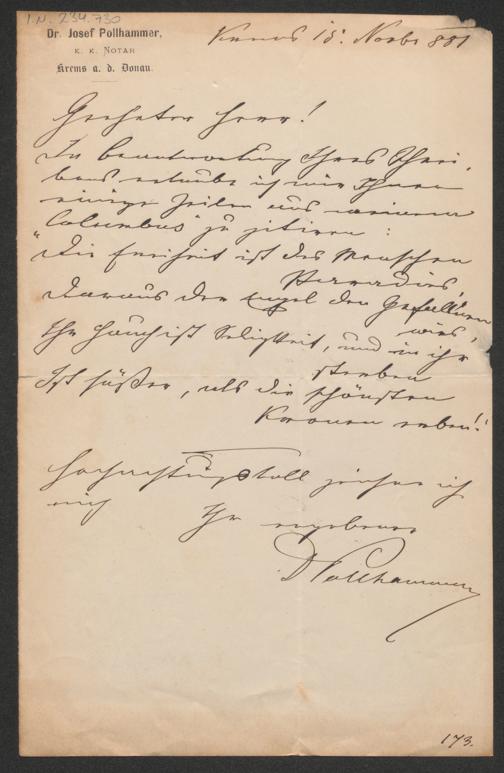 I.N. 234.730
Dr. Josef Pollhammer,
K. K. NOTAR
Krems a. d. Donau.
Krems 15. Novbr 881
Geehrter Herr!
In Beantwortung Ihres Schrei-
bens erlaube ich mir Ihnen
einige Zeilen aus meinem
"Columbus" zu zitiren:
"Die Freiheit ist des Menschen
Paradies,
Daraus der Engel den Gefall'nen
wies,
Ihr Hauch ist Seligkeit, und in ihr
sterben
Ist süßer, als die schönsten
Kronen erben!"
Hochachtungsvoll zeichne ich
mich
Ihr ergebener
DPollhammer
173.